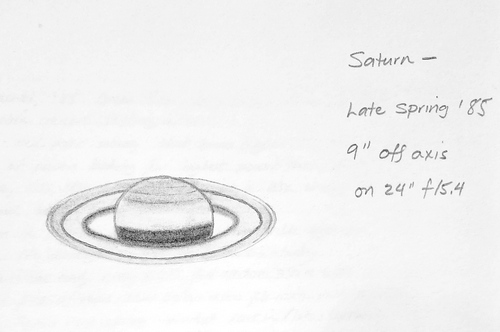 Saturn —
Late Spring '85
9" off axis
on 24" f/5.4